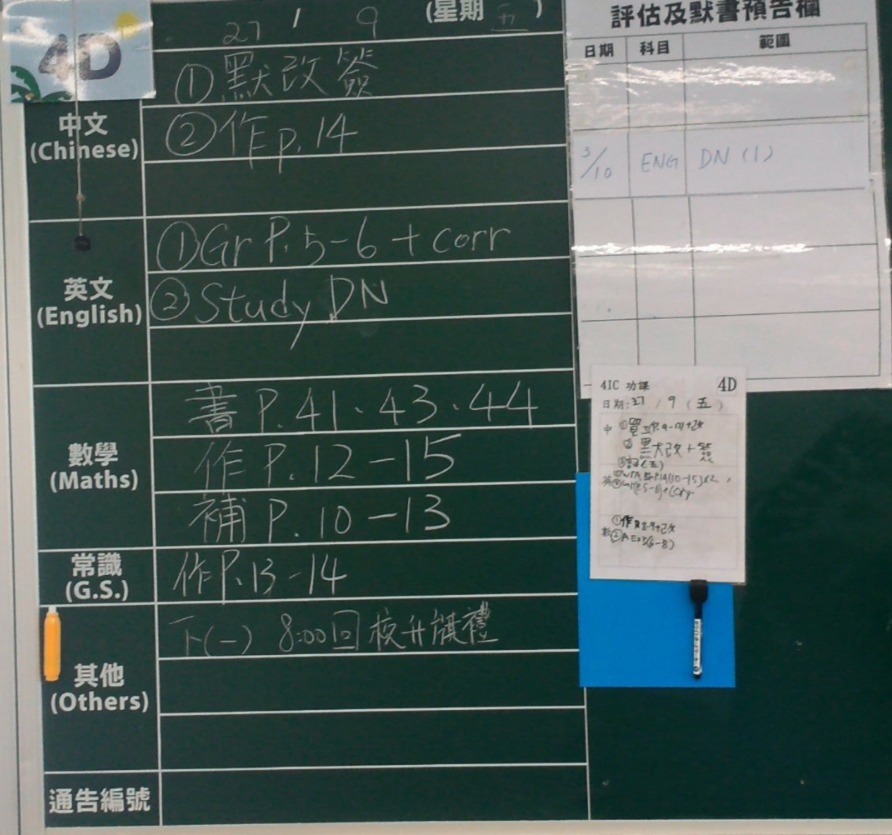 4D
27 / 9 (星期 五)
中文
(Chinese)
①默改簽
②作p.14
英文
(English)
①Gr P.5-6 + corr
②Study DN
數學
(Maths)
書 P.41.43.44
作 P.12-15
補 P.10-13
常識
(G.S.)
作P.13-14
其他
(Others)
下(一) 8:00回校升旗禮
通告編號
評估及默書預告欄
日期 科目 範圍
3/10 ENG DN (1)
4IC 功課 4D
日期: 27 / 9 (五)
中